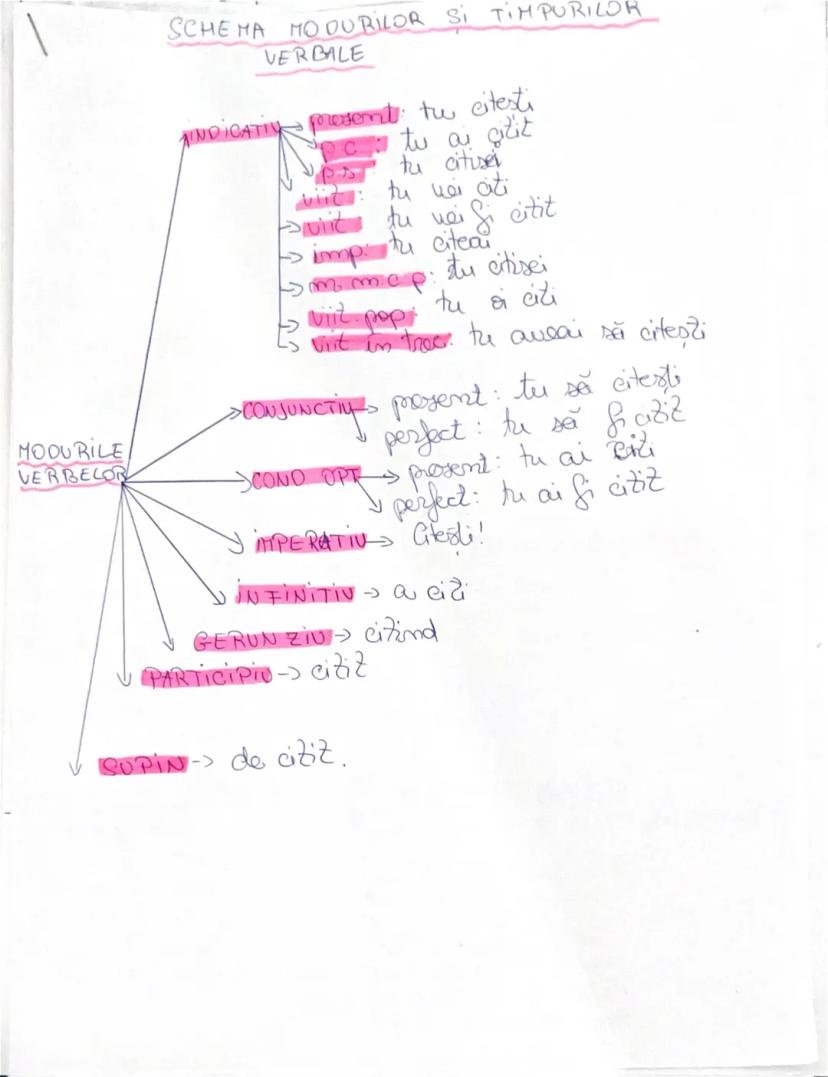 SCHEMA MODURILOR ȘI TIMPURILOR
VERBALE
INDICATIV
prezent: tu citești
p.c: tu ai citit
p.s: tu citisei
viit: tu vei citi
viit tu vei fi citit
imp: tu citeai
m.m.c.p: tu citisei
viit. pop: tu oi citi
viit în trec: tu aveai să citești
CONJUNCTIV prezent: tu să citești
perfect: tu să fi citit
MODURILE
VERBELOR
COND OPT prezent: tu ai citi
perfect: tu ai fi citit
IMPERATIV Citești!
INFINITIV a citi
GERUNZIU citind
PARTICIPIU citit
SUPIN de citit.